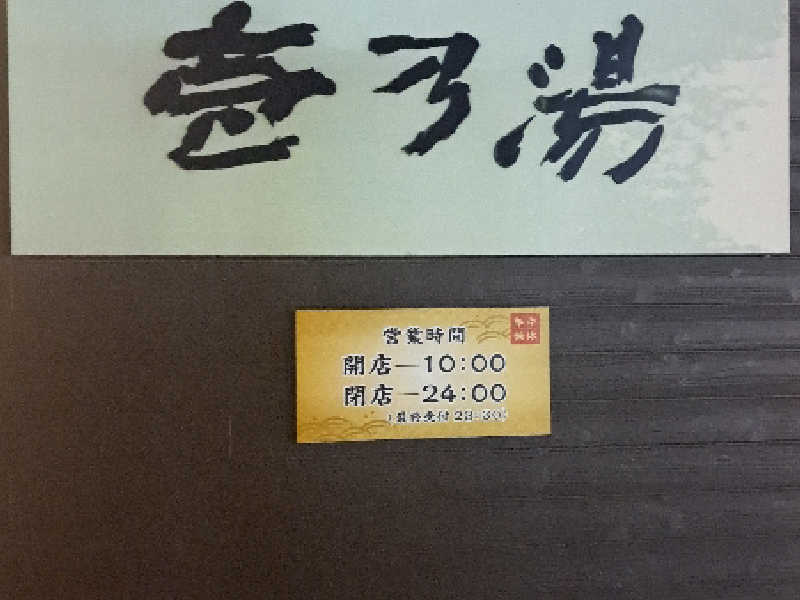 壱乃湯
営業時間
年中
無休
開店―10:00
閉店―24:00
(最終受付 23:30)